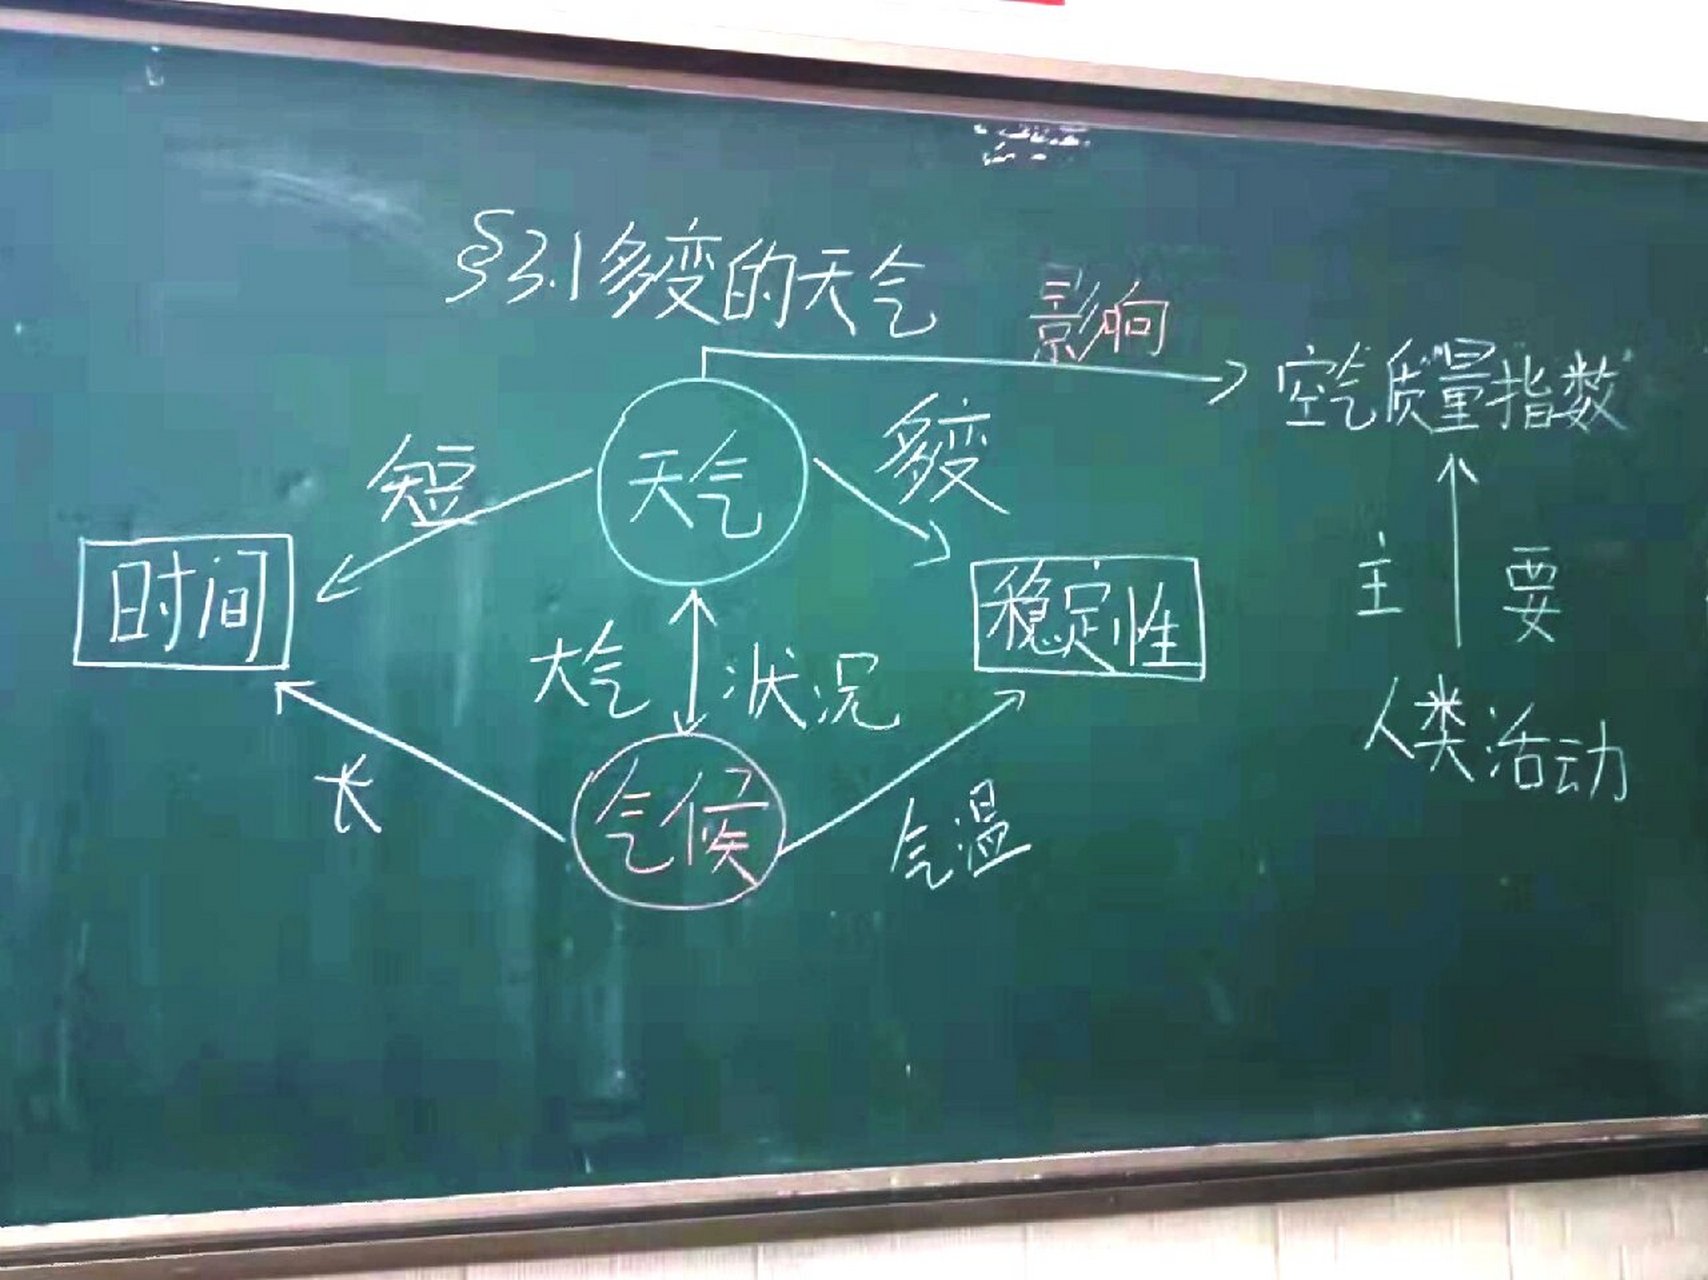 §3.1多变的天气
影响
空气质量指数
短
天气
多变
时间
大气
状况
稳定性
主
要
人类活动
长
气候
气温